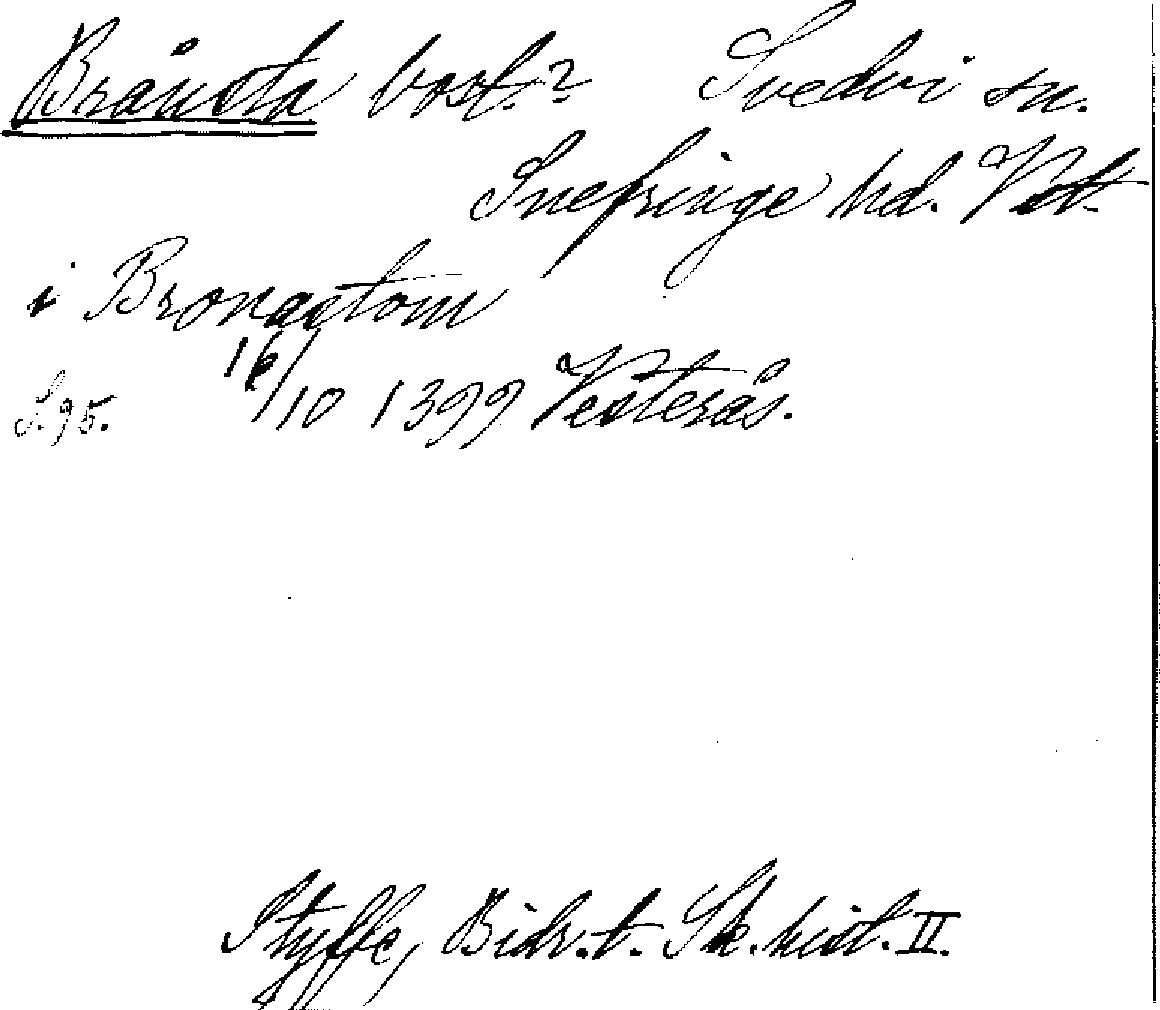 Brånsta bost.? Svedvi sn.
Snefringe hd. Vstl.
i Bronastom
S. 95. 16/10 1399 Vesterås.
Styffe, Bidr. t. Sk. hist. II.